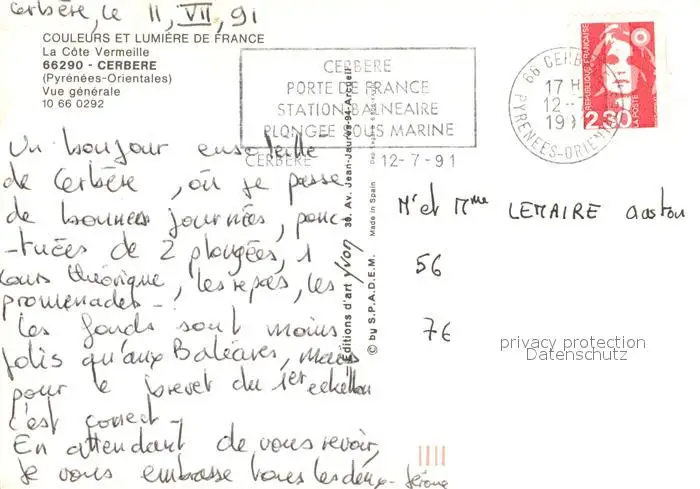 Cerbère, le 11, VII, 91
COULEURS ET LUMIÈRE DE FRANCE
La Côte Vermeille
66290 - CERBERE
(Pyrénées-Orientales)
Vue générale
10 66 0292
CERBERE
PORTE DE FRANCE
STATION BALNEAIRE
PLONGEE SOUS MARINE
CERBERE 12-7-91
66 CERB
17 H
12
19
PYRENEES-ORIEN
REPUBLIQUE FRANÇAISE
2,30
LA POSTE
Un bonjour ensoleillé
de Cerbère, où je passe
de bonnes journées, ponc
-tuées de 2 plongées, 1
cours théorique, les repas, les
promenades -
Les fonds sont moins
jolis qu'aux Baléares, mais
pour le brevet du 1er echellon
c'est correct -
En attendant de vous revoir,
je vous embrasse tous les deux - Jérôme
Editions d'art yvon 30, Av. Jean-Jaurès-94-Arcueil
© by S.P.A.D.E.M. Made in Spain
Mr et Mme LEMAIRE Gaston
56
76
privacy protection
Datenschutz